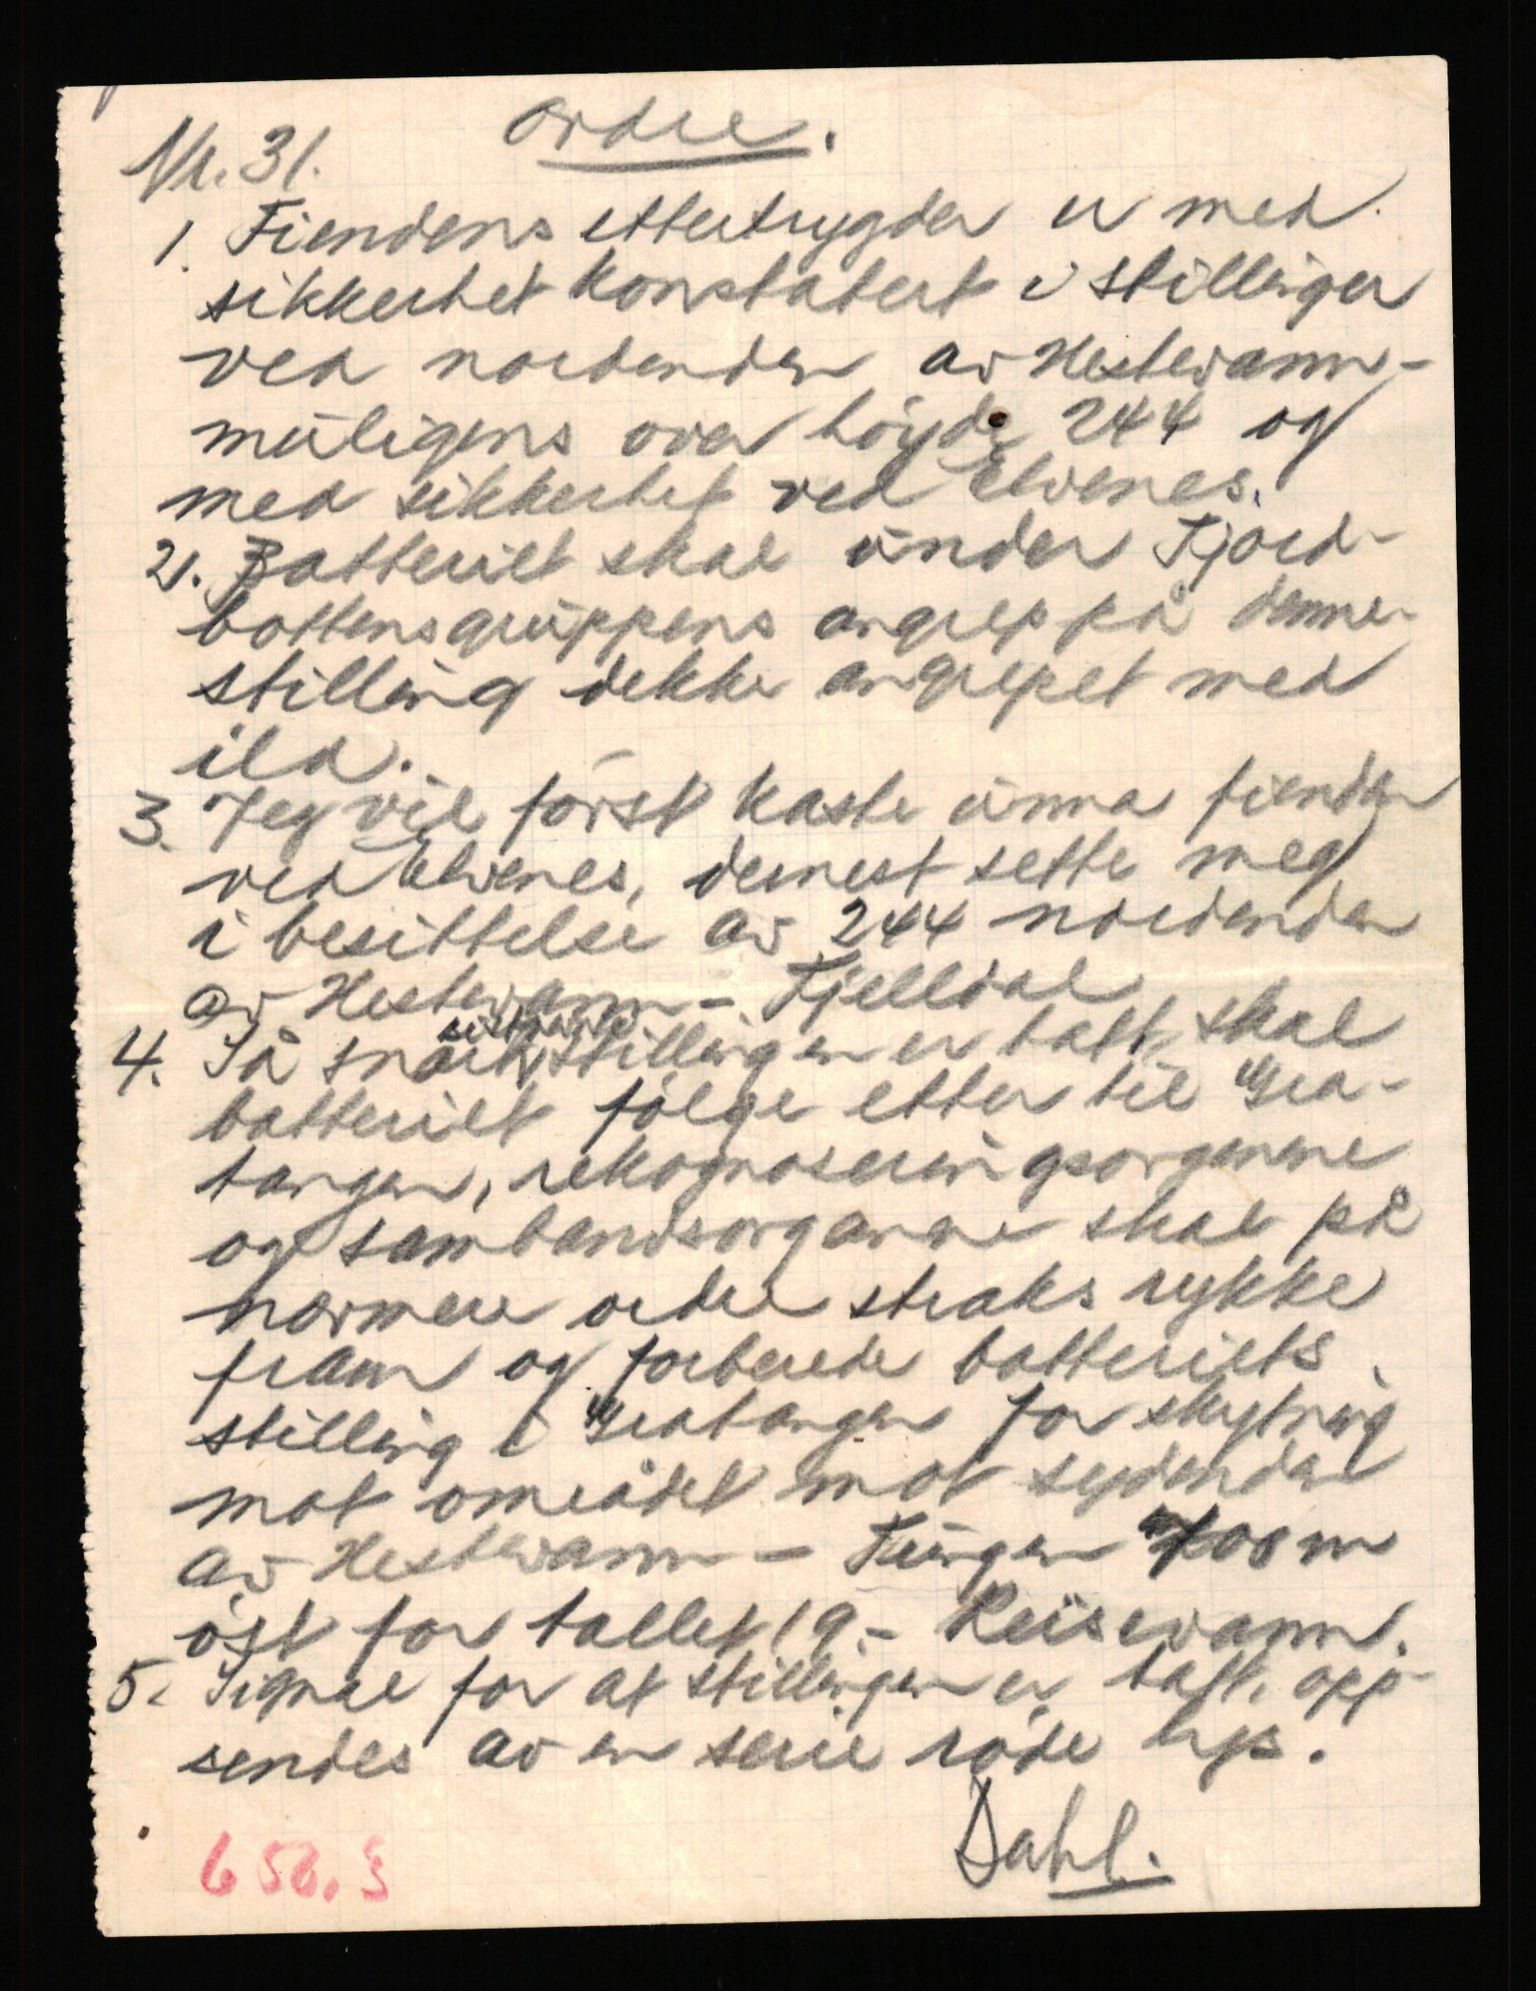 Ordre.
Nr. 31.
1. Fiendens ettertrygder er med
sikkerhet konstatert i stillinger
ved nordenden av Hestevann -
muligens over höyde 244 og
med sikkerhet ved Elvenes.
2. Batteriet skal under Fjord-
bottensgruppens angrep på denne
stilling dekke angrepet med
ild.
3. Jeg vil först kaste unna fienden
ved Elvenes, dernest sette meg
i besittelse av 244 nordenden
av Hestevann - Fjelldal
4. Så snart sistnevnte stillingen er tatt, skal
batteriet fölge etter til Gra-
tangen, rekognoseringsorganene
og sambandsorganene skal på
nærmere ordre straks rykke
fram og forberede batteriets
stilling i Gratangen for skytning
mot området mot sydenden
av Hestevann - Tungen 700 m
öst for tallet 19. - Reisevann.
5. Signal for at stillingen er tatt, opp-
sendes av en serie röde lys.
Dahl.
650.5